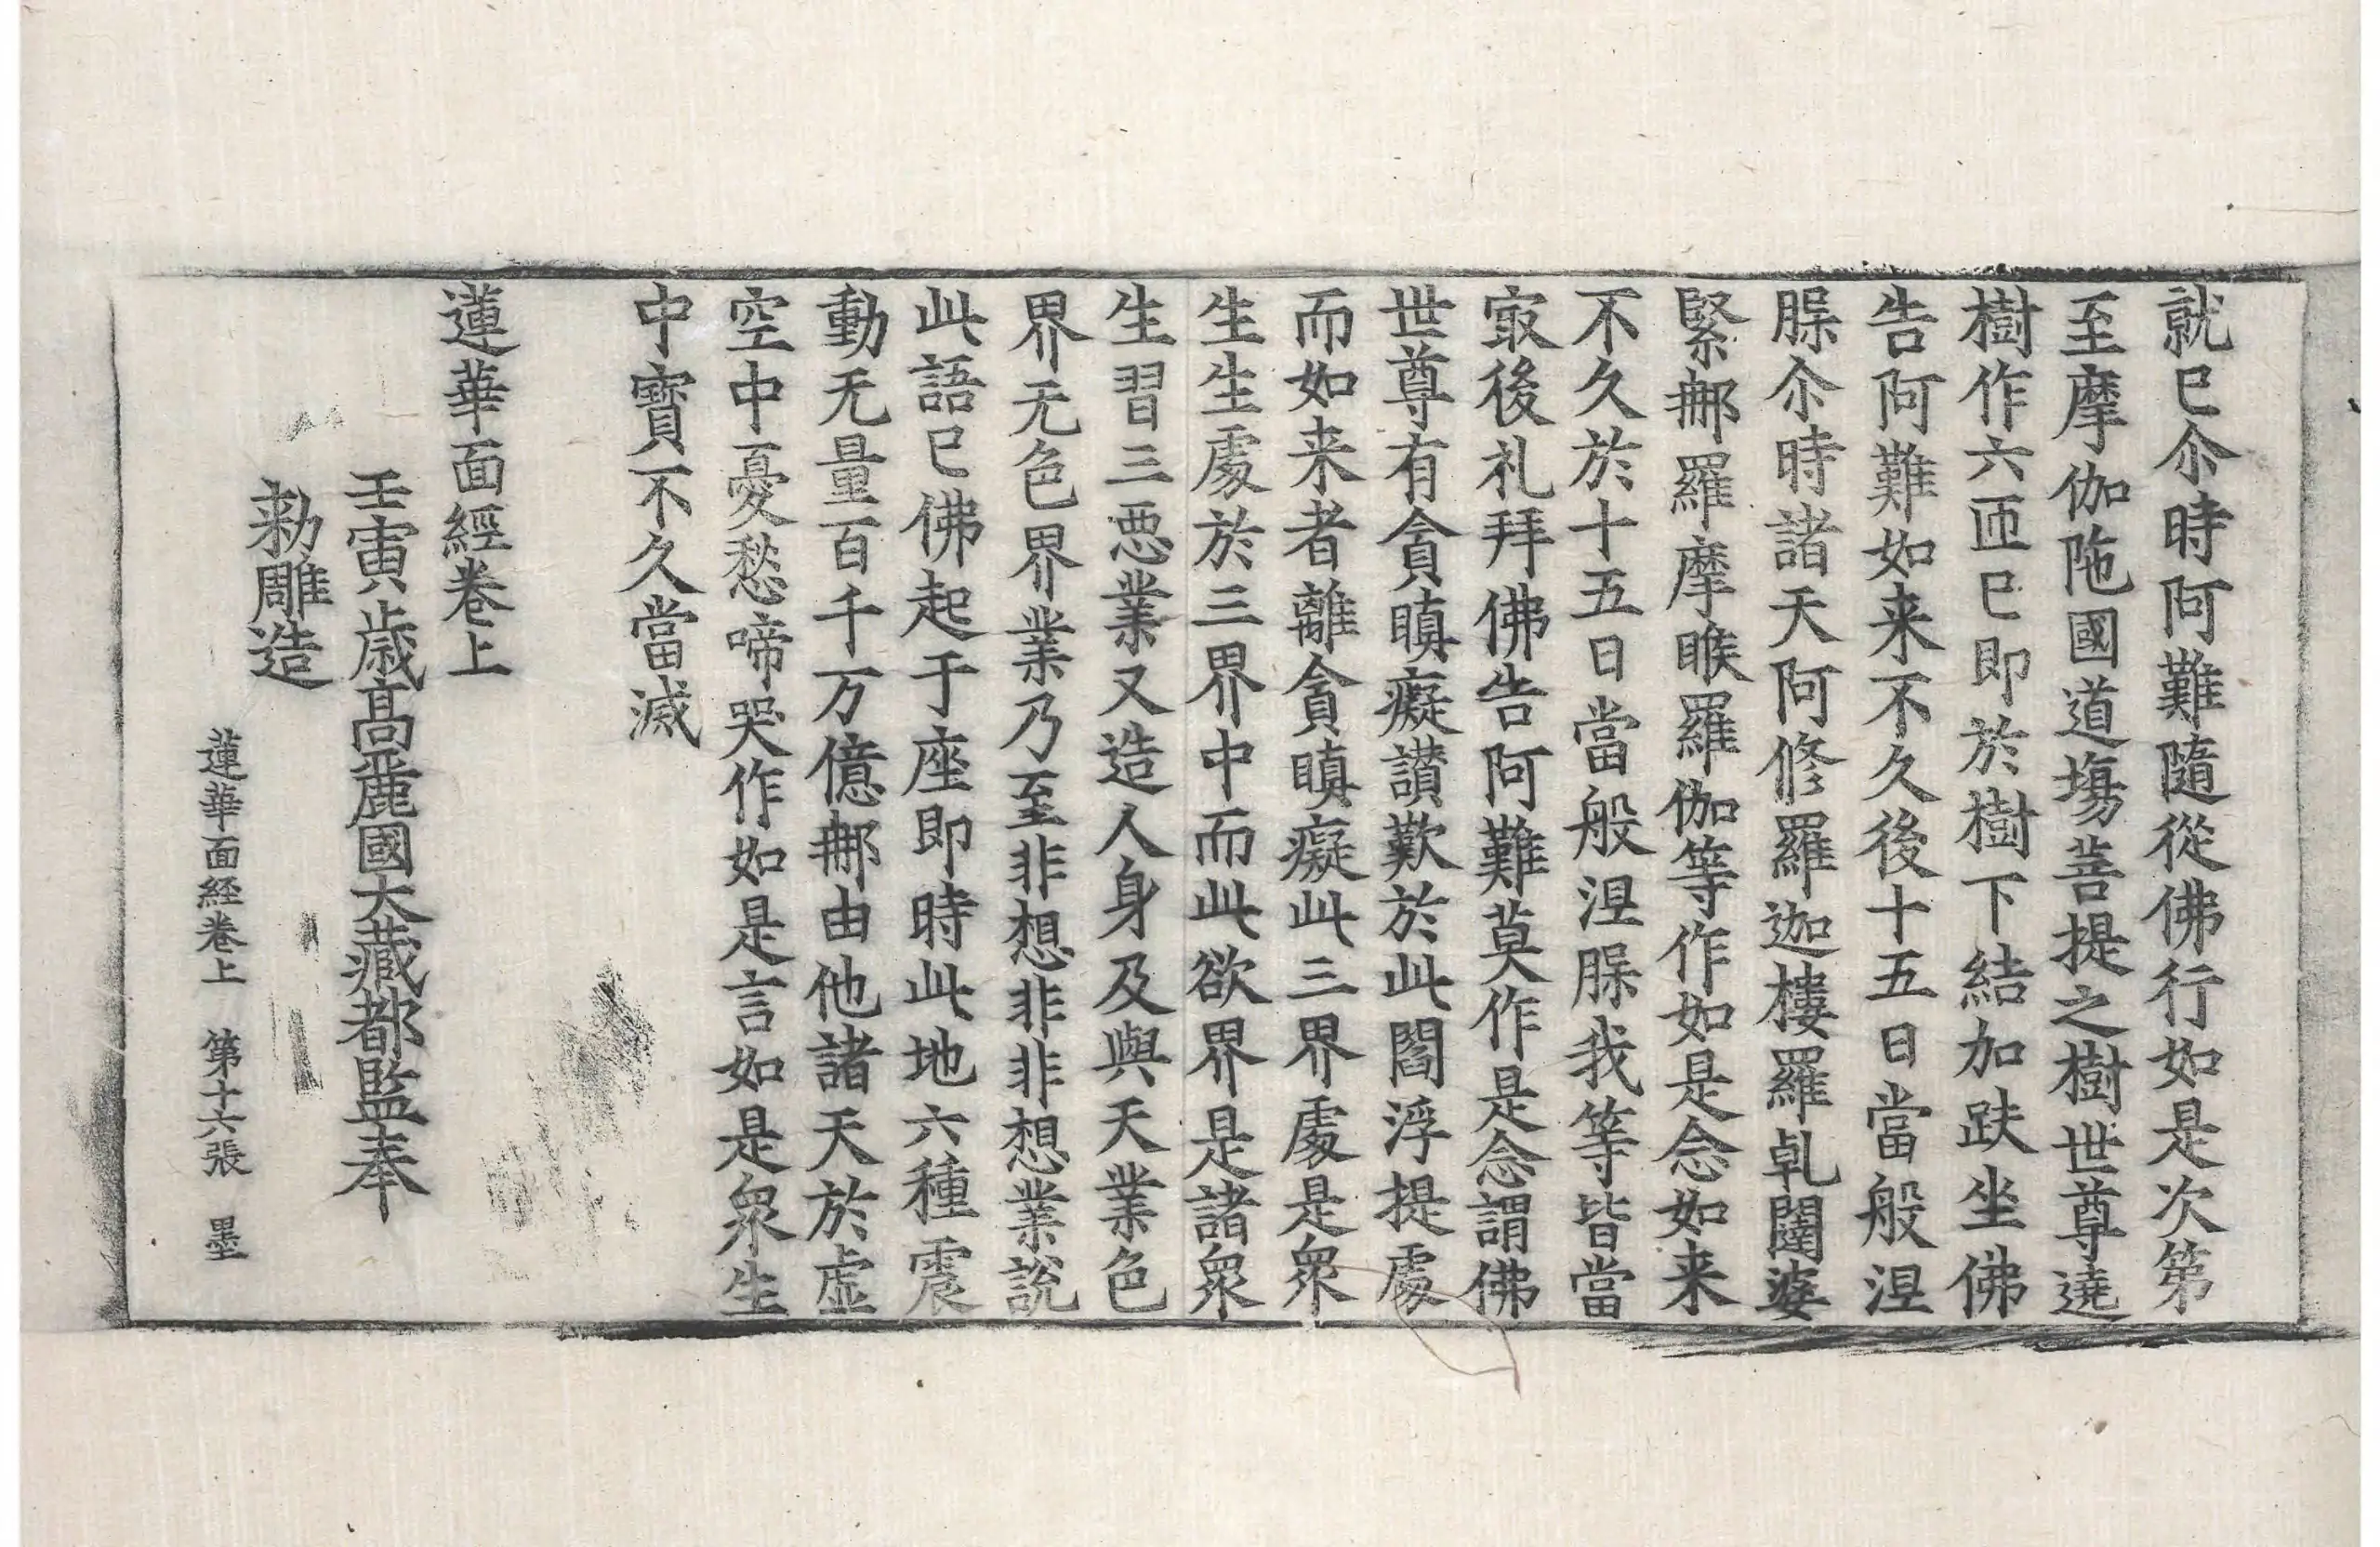 就已尒時阿難隨從佛行如是次第
至摩伽陁國道塲菩提之樹世尊遶
樹作六匝已即於樹下結加趺坐佛
告阿難如来不久後十五日當般涅
腂尒時諸天阿修羅迦樓羅乹闥婆
緊那羅摩睺羅伽等作如是念如来
不久於十五日當般涅腂我等皆當
冣後礼拜佛告阿難莫作是念謂佛
世尊有貪瞋癡讃歎於此閻浮提處
而如来者離貪瞋癡此三界處是衆
生生處於三界中而此欲界是諸衆
生習三惡業又造人身及與天業色
界无色界業乃至非想非非想業說
此語已佛起于座即時此地六種震
動无量百千万億那由他諸天於虛
空中憂愁啼哭作如是言如是衆生
中寶不久當滅
蓮華面經卷上
壬寅歳高麗國大藏都監奉
勑雕造
蓮華面経卷上 第十六張 墨